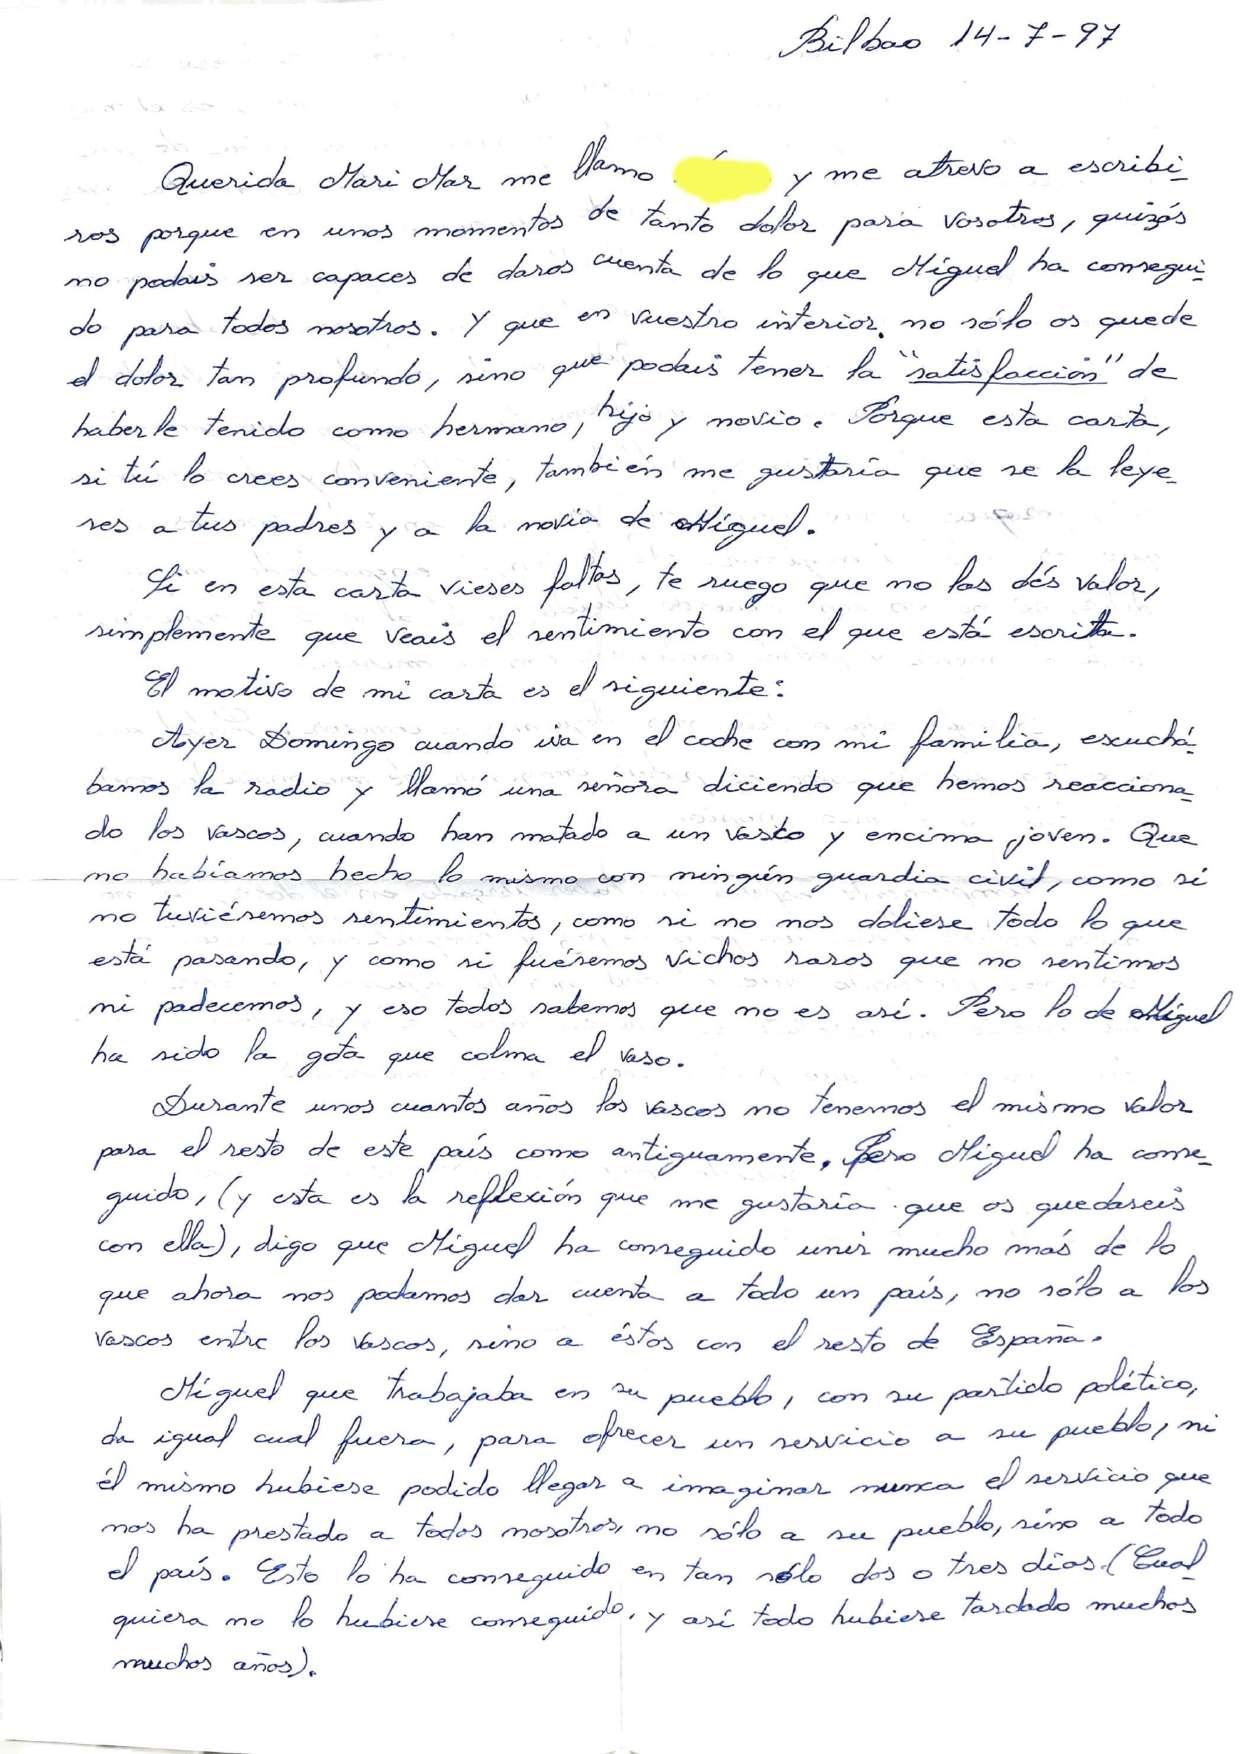 Bilbao 14-7-97
Querida Mari Mar me llamo y me atrevo a escribi-
ros porque en unos momentos de tanto dolor para vosotros, quizás
no podais ser capaces de daros cuenta de lo que Miguel ha consegui-
do para todos nosotros. Y que en vuestro interior, no sólo os quede
el dolor tan profundo, sino que podais tener la "satisfacción" de
haberle tenido como hermano, hijo y novio. Porque esta carta,
si tú lo crees conveniente, también me gustaría que se la leye-
ses a tus padres y a la novia de Miguel.
Si en esta carta vieses faltas, te ruego que no las dés valor,
simplemente que veais el sentimiento con el que está escrita.
El motivo de mi carta es el siguiente:
Ayer Domingo cuando iva en el coche con mi familia, escuchá-
bamos la radio y llamó una señora diciendo que hemos reacciona-
do los vascos, cuando han matado a un vasco y encima joven. Que
no habíamos hecho lo mismo con ningún guardia civil, como si
no tuviésemos sentimientos, como si no nos doliese todo lo que
está pasando, y como si fuésemos vichos raros que no sentimos
ni padecemos, y eso todos sabemos que no es así. Pero lo de Miguel
ha sido la gota que colma el vaso.
Durante unos cuantos años los vascos no tenemos el mismo valor
para el resto de este país como antiguamente. Pero Miguel ha conse-
guido, (y esta es la reflexión que me gustaría que os quedaseis
con ella), digo que Miguel ha conseguido unir mucho más de lo
que ahora nos podamos dar cuenta a todo un país, no sólo a los
vascos entre los vascos, sino a éstos con el resto de España.
Miguel que trabajaba en su pueblo, con su partido político,
da igual cual fuera, para ofrecer un servicio a su pueblo, ni
él mismo hubiese podido llegar a imaginar nunca el servicio que
nos ha prestado a todos nosotros, no sólo a su pueblo, sino a todo
el país. Esto lo ha conseguido en tan sólo dos o tres días (Cual-
quiera no lo hubiese conseguido, y así todo hubiese tardado muchos
muchos años).